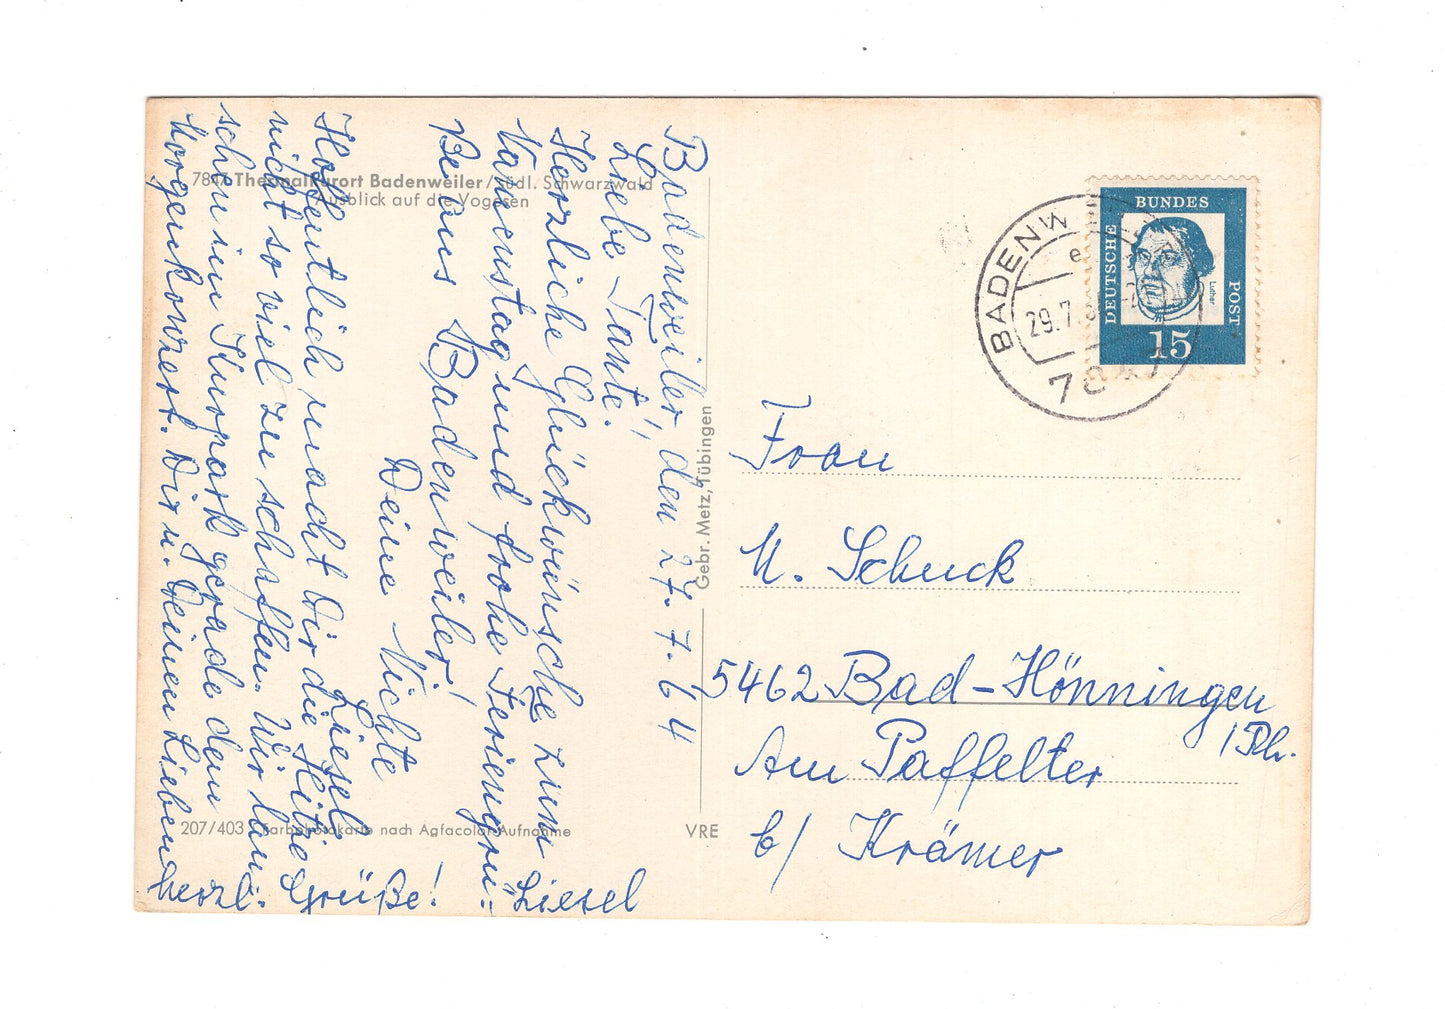 Badenweiler, den 27.7.64
Liebe Tante!
Herzliche Glückwünsche zum
Namenstag und frohe Feriengrü-
ße aus Badenweiler!
Deine Nichte
Liesel
Hoffentlich macht Dir die Hitze
nicht so viel zu schaffen. Wir lau-
schen im Kurpark gerade dem
Morgenkonzert. Dir u. Deinen Lieben
herzl. Grüße! Liesel
7847 Thermalkurort Badenweiler/südl. Schwarzwald
Ausblick auf die Vogesen
207/403 Farbphotokarte nach Agfacolor-Aufnahme
VRE
Gebr. Metz, Tübingen
BADENW
e
29.7.
7847
DEUTSCHE
BUNDES
POST
Luther
15
Frau
M. Schuck
5462 Bad-Hönningen
/Rh.
Am Paffelter
b/ Krämer